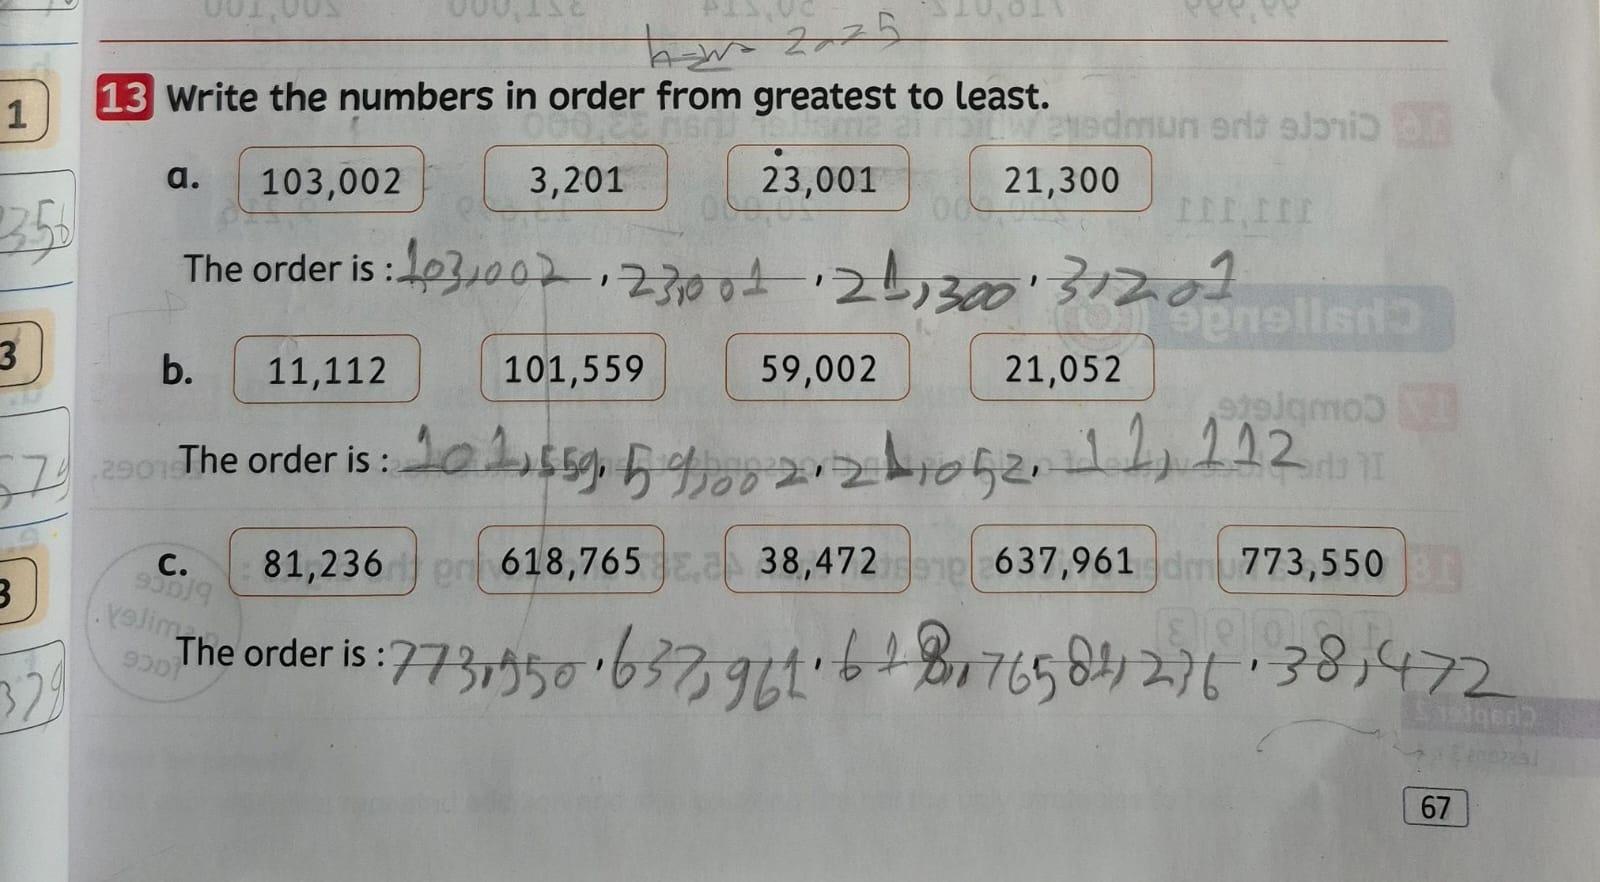 h=w= 2a=5
13 Write the numbers in order from greatest to least.
1
a. 103,002 3,201 23,001 21,300
356
The order is : 103,002 , 23,001 , 21,300 , 3,201
3
b. 11,112 101,559 59,002 21,052
The order is : 101,559, 59,002, 21,052, 11,112
3
c. 81,236 618,765 38,472 637,961 773,550
The order is : 773,550 , 637,961 , 618,765 81,236 , 38,472
379
67